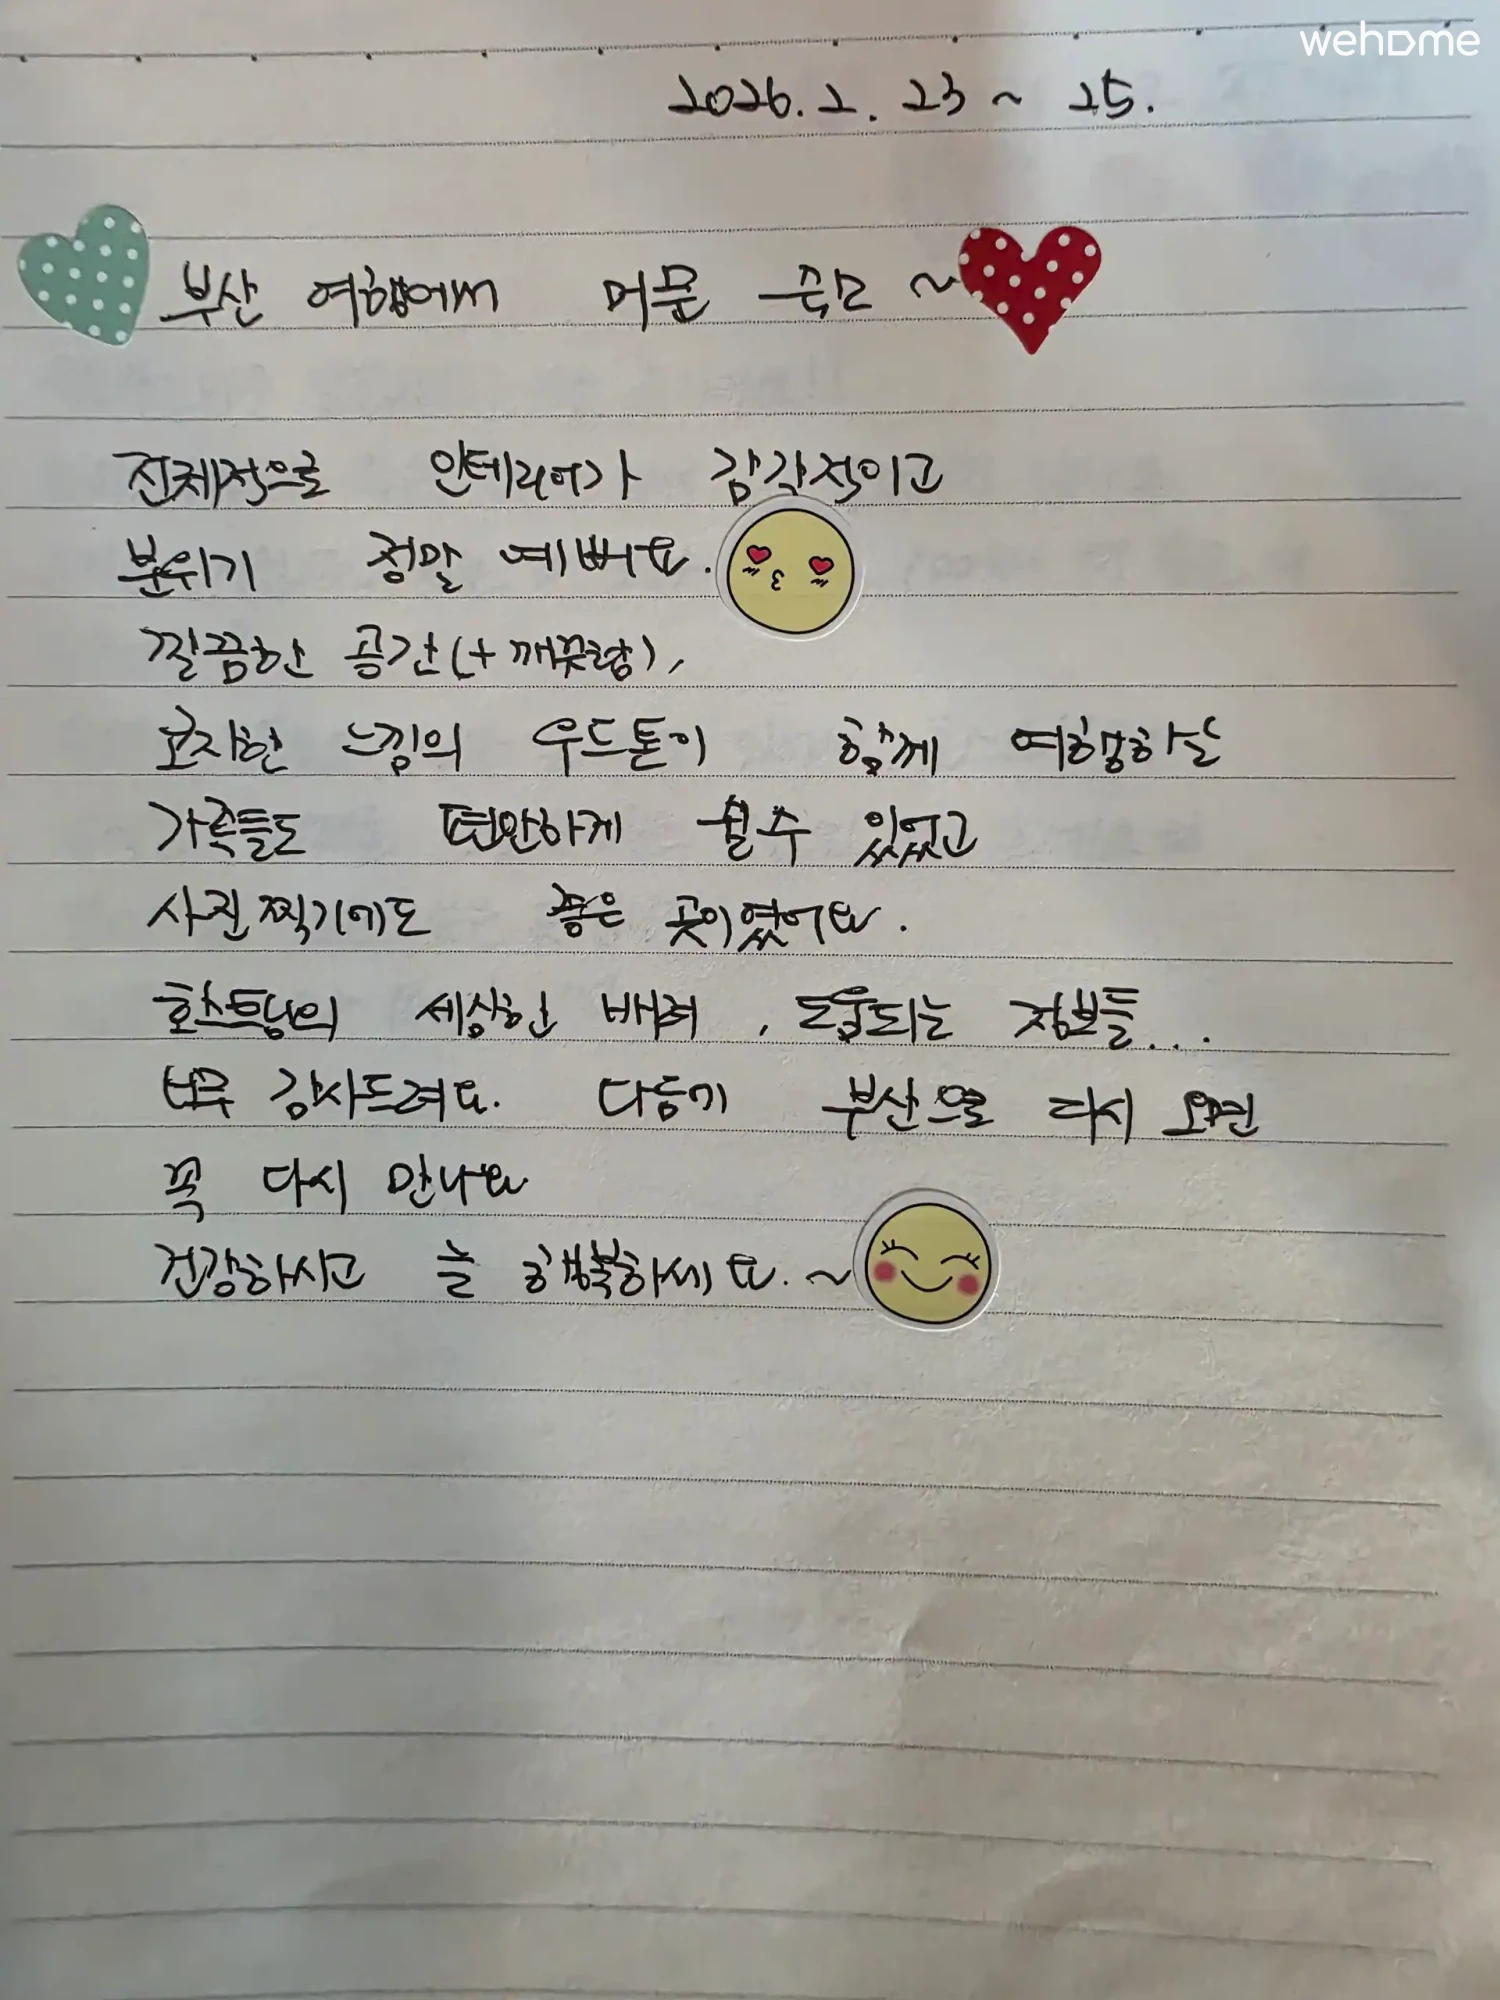 wehome
2026. 2. 23 ~ 25.
부산 여행에서 머문 숙소 ~
전체적으로 인테리어가 감각적이고
분위기 정말 예뻐요.
깔끔한 공간(+깨끗함),
포지한 느낌의 우드톤이 함께 여행하는
가족들도 편안하게 쉴수 있었고
사진찍기에도 좋은 곳이었어요.
호스트님의 세심한 배려, 도움되는 정보들...
너무 감사드려요. 다음기 부산으로 다시 오면
꼭 다시 만나요
건강하시고 늘 행복하세요. ~